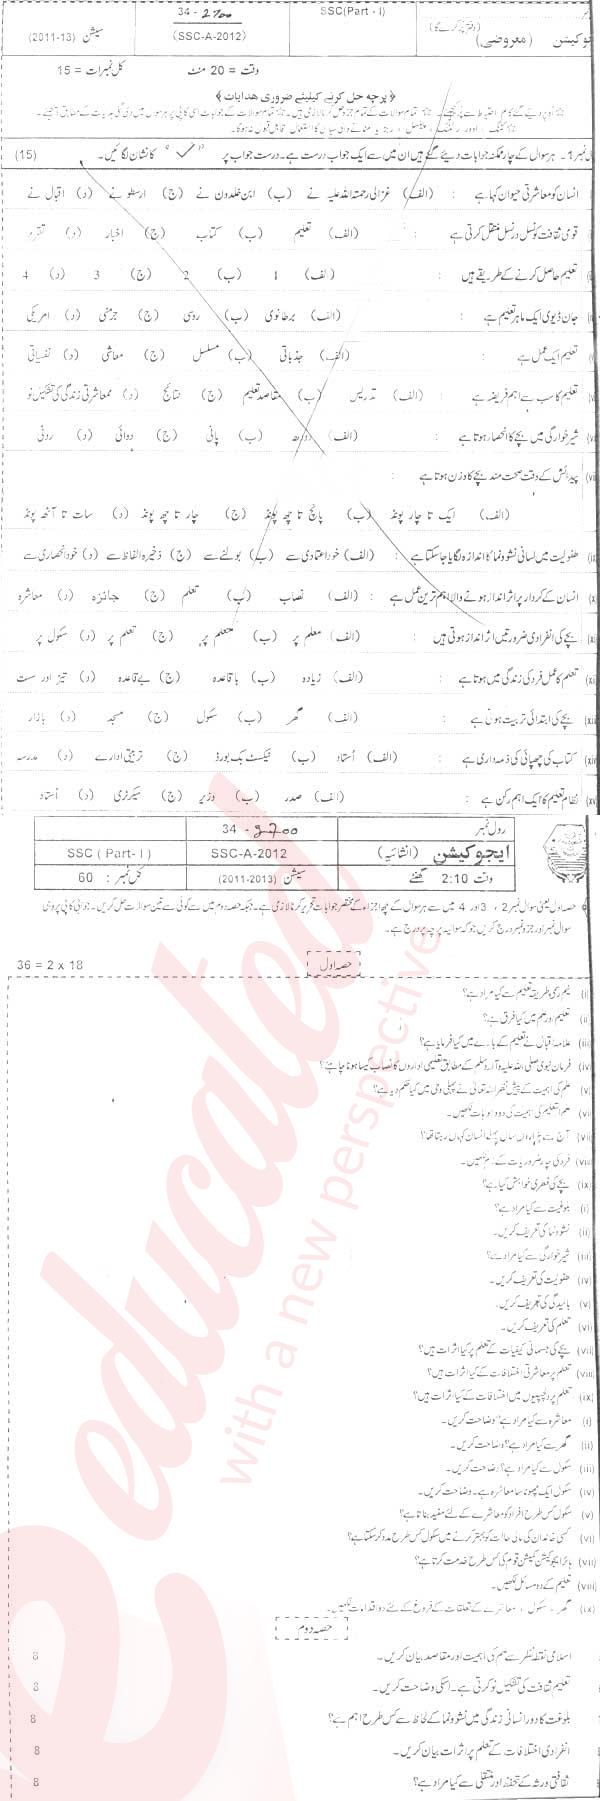 34 - 2700
SSC(Part - I)
(دفتر پُر کرے گا)
سیشن (2011-13)
(SSC-A-2012)
ایجوکیشن (معروضی)
وقت = 20 منٹ
کل نمبرات = 15
﴿ پرچہ حل کرنے کیلئے ضروری ھدایات ﴾
سوال نمبر 1 - ہر سوال کے چار ممکنہ جوابات دیئے گئے ہیں ان میں سے ایک جواب درست ہے۔ درست جواب پر " ✓ " کا نشان لگائیں۔ (15)
انسان کو معاشرتی حیوان کہا ہے : (الف) غزالی رحمتہ اللہ علیہ نے (ب) ابن خلدون نے (ج) ارسطو نے (د) اقبال نے
قومی ثقافت کو نسل در نسل منتقل کرتی ہے : (الف) تعلیم (ب) کتاب (ج) اخبار (د) تقریر
تعلیم حاصل کرنے کے طریقے ہیں : (الف) 1 (ب) 2 (ج) 3 (د) 4
جان ڈیوی ایک ماہر تعلیم ہے : (الف) برطانوی (ب) روسی (ج) جرمنی (د) امریکی
تعلیم ایک عمل ہے : (الف) جذباتی (ب) مسلسل (ج) معاشی (د) نفسیاتی
تعلیم کا سب سے اہم فریضہ ہے : (الف) تدریس (ب) مقاصد تعلیم (ج) نتائج (د) معاشرتی زندگی کی تشکیل نو
شیر خوارگی میں بچے کا انحصار ہوتا ہے : (الف) دودھ (ب) پانی (ج) دوائی (د) روٹی
پیدائش کے وقت صحت مند بچے کا وزن ہوتا ہے :
(الف) ایک تا چار پونڈ (ب) پانچ تا چھ پونڈ (ج) چار تا چھ پونڈ (د) سات تا آٹھ پونڈ
طفولیت میں لسانی نشوونما کا اندازہ لگایا جا سکتا ہے : (الف) خود اعتمادی سے (ب) بولنے سے (ج) ذخیرہ الفاظ سے (د) خود انحصاری سے
انسان کے کردار پر اثر انداز ہونے والا اہم ترین عمل ہے : (الف) نصاب (ب) تعلم (ج) جائزہ (د) معاشرہ
بچے کی انفرادی ضرورتیں اثر انداز ہوتی ہیں : (الف) معلم پر (ب) متعلم پر (ج) تعلم پر (د) سکول پر
تعلم کا عمل فرد کی زندگی میں ہوتا ہے : (الف) زیادہ (ب) باقاعدہ (ج) بے قاعدہ (د) تیز اور سست
بچے کی ابتدائی تربیت ہوتی ہے : (الف) گھر (ب) سکول (ج) مسجد (د) بازار
کتاب کی چھپائی کی ذمہ داری ہے : (الف) اُستاد (ب) ٹیکسٹ بک بورڈ (ج) تربیتی ادارے (د) مدرسہ
نظام تعلیم کا ایک اہم رکن ہے : (الف) صدر (ب) وزیر (ج) سیکرٹری (د) اُستاد
رول نمبر
34 - 2700
ایجوکیشن (انشائیہ)
SSC-A-2012
SSC ( Part- I )
وقت 2:10 گھنٹے
سیشن (2011-2013)
کل نمبر: 60
حصہ اول یعنی سوال نمبر 2 ، 3 اور 4 میں سے ہر سوال کے چھ اجزاء کے مختصر جوابات تحریر کرنا لازمی ہے۔ جبکہ حصہ دوم میں سے کوئی سے تین سوالات حل کریں۔ جوابی کاپی پر وہی
سوال نمبر اور جزو نمبر درج کریں جو کہ سوالیہ پرچہ پر درج ہے۔
حصہ اول
36 = 2 x 18
(i) نیم رسمی طریقہ تعلیم سے کیا مراد ہے؟
(ii) تعلیم اور علم میں کیا فرق ہے؟
(iii) علامہ اقبال نے تعلیم کے بارے میں کیا فرمایا ہے؟
(iv) فرمان نبوی صلی اللہ علیہ وآلہ وسلم کے مطابق تعلیمی اداروں کا نصاب کیسا ہونا چاہیے؟
(v) علم کی اہمیت کے پیش نظر اللہ تعالیٰ نے پہلی وحی میں کیا حکم دیا ہے؟
(vi) علم التعلیم کی اہمیت کی دو وجوہات لکھیں۔
(vii) آج سے ہزاروں سال پہلے انسان کہاں رہتا تھا؟
(viii) فرد کی چار ضروریات کے نام لکھیں۔
(ix) بچے کی فطری خواہش کیا ہے؟
(i) بلوغیت سے کیا مراد ہے؟
(ii) نشوونما کی تعریف کریں۔
(iii) شیر خوارگی سے کیا مراد ہے؟
(iv) طفولیت کی تعریف کریں۔
(v) بالیدگی کی تعریف کریں۔
(vi) تعلم کی تعریف کریں۔
(vii) بچے کی جسمانی کیفیات کے تعلم پر کیا اثرات ہیں؟
(viii) تعلم پر معاشرتی اختلافات کے کیا اثرات ہیں؟
(ix) تعلم پر دلچسپیوں میں اختلافات کے کیا اثرات ہیں؟
(i) معاشرہ سے کیا مراد ہے؟ وضاحت کریں۔
(ii) گھر سے کیا مراد ہے؟ وضاحت کریں۔
(iii) سکول سے کیا مراد ہے؟ وضاحت کریں۔
(iv) سکول ایک چھوٹا سا معاشرہ ہے۔ وضاحت کریں۔
(v) سکول کس طرح افراد کو معاشرے کے لئے مفید بناتا ہے؟
(vi) کسی خاندان کی مالی حالت کو بہتر کرنے میں سکول کس طرح مدد کر سکتا ہے؟
(vii) ہائر ایجوکیشن کمیشن قوم کی کس طرح خدمت کرتا ہے؟
(viii) تعلیم کے دو مسائل لکھیں۔
(ix) گھر ، سکول ، معاشرے کے تعلقات کے فروغ کے لئے دو اقدامات لکھیں۔
حصہ دوم
اسلامی نقطہ نظر سے علم کی اہمیت اور مقاصد بیان کریں۔ 8
تعلیم ثقافت کی تشکیل نو کرتی ہے۔ اسکی وضاحت کریں۔ 8
بلوغت کا دور انسانی زندگی میں نشوونما کے لحاظ سے کس طرح اہم ہے؟ 8
انفرادی اختلافات کے تعلم پر اثرات بیان کریں۔ 8
ثقافتی ورثہ کے تحفظ اور منتقلی سے کیا مراد ہے؟ 8
educated
with a new perspective